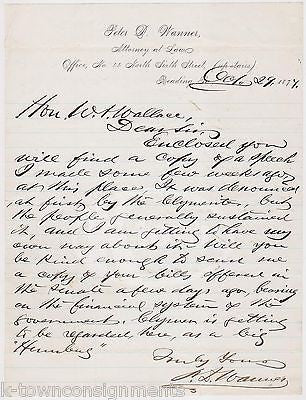 Peter D. Wanner,
Attorney at Law
Office, No. 28 North Sixth Street, (up-stairs)
Reading, Oct 29, 1877.
Hon. W. A. Wallace,
Dear Sir,
Enclosed you
will find a copy of a speech
I made some few weeks ago
at this place. It was denounced
at first by the Clymerites, but
the people generally sustained
it, and I am getting to have my
own way about it. Will you
be kind enough to send me
a copy of your bills offered in
the Senate a few days ago, bearing
on the financial system of the
government. Clymer is getting
to be regarded here, as a big
"Humbug"
Truly Yours
P. D. Wanner
k-townconsignments